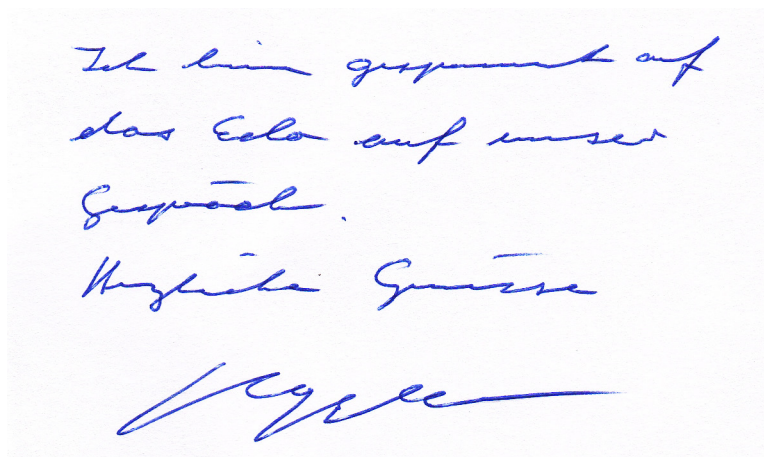 Ich bin gespannt auf
das Echo auf unser
Gespräch.
Herzliche Grüsse